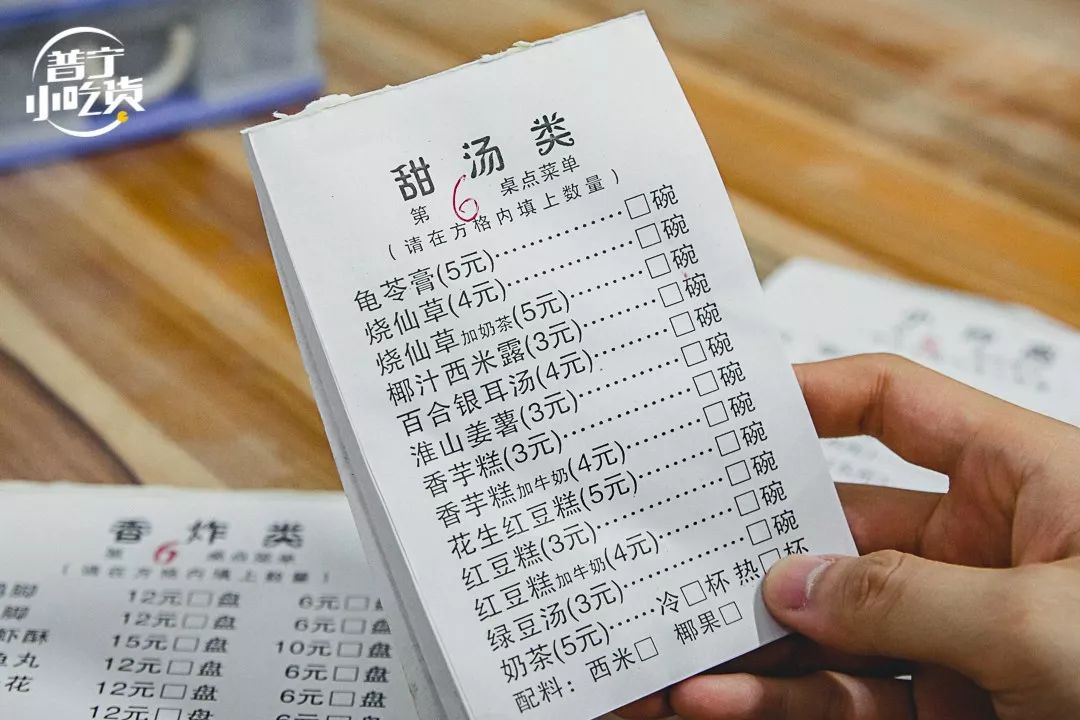 普宁
小吃货
甜汤类
第6桌点菜单
(请在方格内填上数量)
龟苓膏(5元)……………□碗
烧仙草(4元)……………□碗
烧仙草加奶茶(5元)………□碗
椰汁西米露(3元)…………□碗
百合银耳汤(4元)…………□碗
淮山姜薯(3元)……………□碗
香芋糕(3元)………………□碗
香芋糕加牛奶(4元)………□碗
花生红豆糕(5元)…………□碗
红豆糕(3元)………………□碗
红豆糕加牛奶(4元)………□碗
绿豆汤(3元)………………□碗
奶茶(5元)……冷□杯 热□杯
配料：西米□ 椰果□
香炸类
第6桌点菜单
(请在方格内填上数量)
脚 12元□盘 6元□盘
脚 12元□盘 6元□盘
虾酥 15元□盘 10元□盘
鱼丸 12元□盘 6元□盘
花 12元□盘 6元□盘
12元□盘 6元□盘